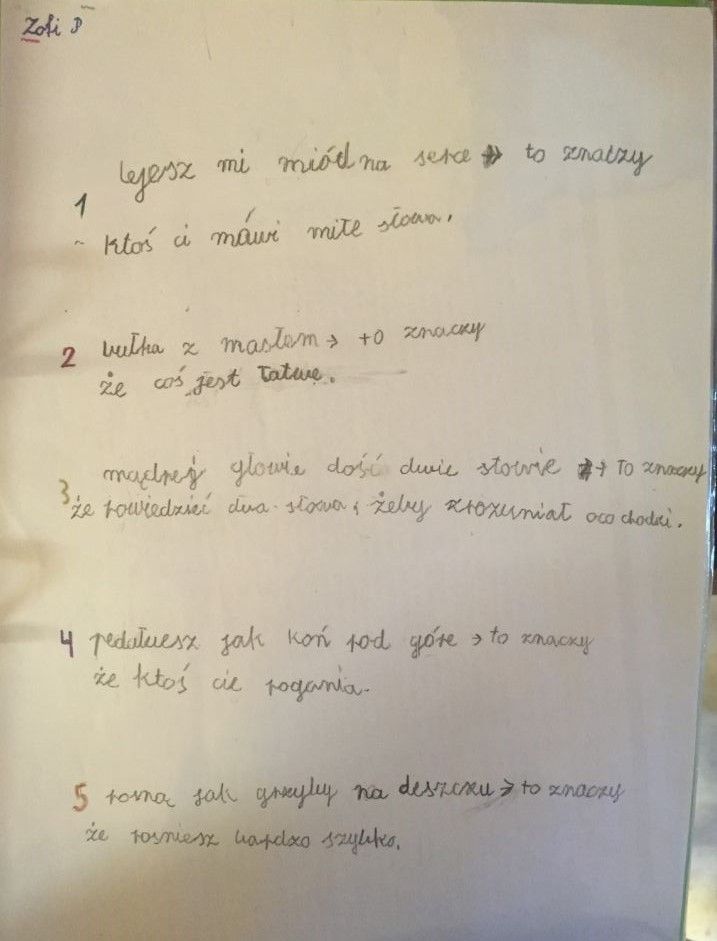 Zosi P
lejesz mi miód na serce → to znaczy
1
~ ktoś ci máwi miłe słowa.
2 bułka z masłem → to znaczy
że coś jest łatwe.
mądrej głowie dość dwie słowie → to znaczy
3 że powiedzieć dwa słowa, żeby zrozumiał oco chodzi.
4 pedałuesz jak koń pod góre → to znaczy
że ktoś cie pogania.
5 rosną jak grzyby na deszczu → to znaczy
że rosniesz bardzo szybko.